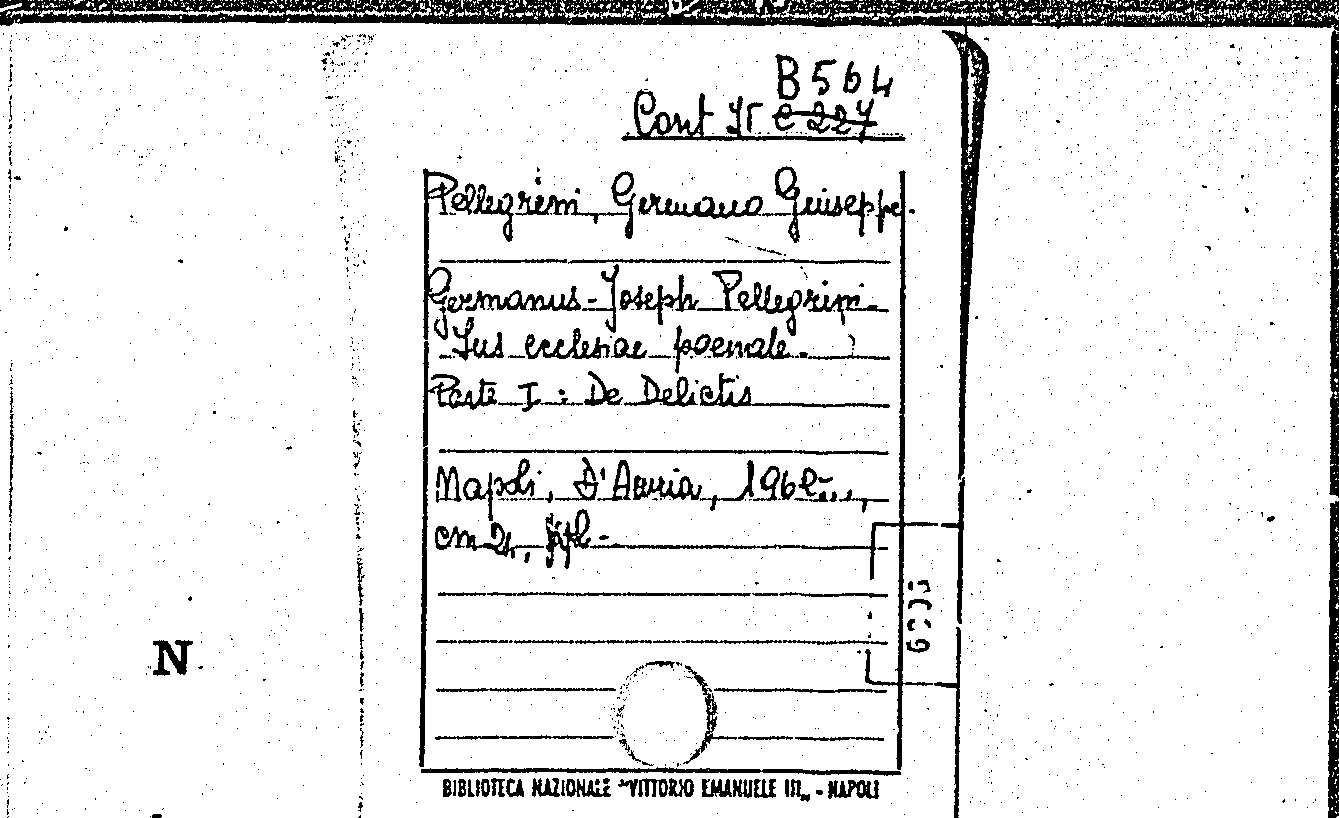 B 564
Cont. It. C 227
Pellegrini, Germano Giuseppe.
Germanus-Joseph Pellegrini-
Jus ecclesiae poenale.
Parte I : De Delictis
Napoli, D'Auria, 1962...,
cm 24,
N
BIBLIOTECA NAZIONALE "VITTORIO EMANUELE III„ - NAPOLI